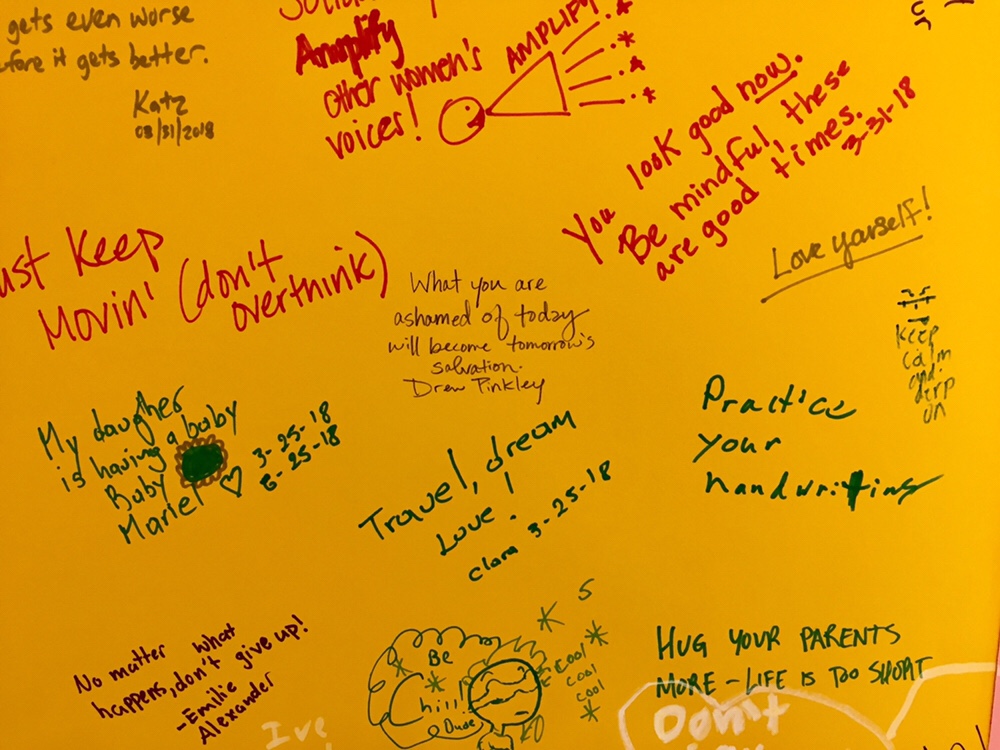 gets even worse
before it gets better.
Katz
03/31/2018
Amplify
other women's
voices!
AMPLIFY
You look good now.
Be mindful, these
are good times.
3-31-18
Just Keep
Movin' (don't
overthink)
What you are
ashamed of today
will become tomorrow's
salvation.
Drew Pinkley
Love yourself!
Keep
calm
and
derp
on
My daugher
is having a baby
Baby
Mariel ♡
3-25-18
6-25-18
Travel, dream
Love!
Clara 3-25-18
Practice
your
handwriting
No matter what
happens, don't give up!
-Emilie
Alexander
Be
hill!
Dude
Cool
cool
cool
HUG YOUR PARENTS
MORE - LIFE IS TOO SHORT
I've
Don't